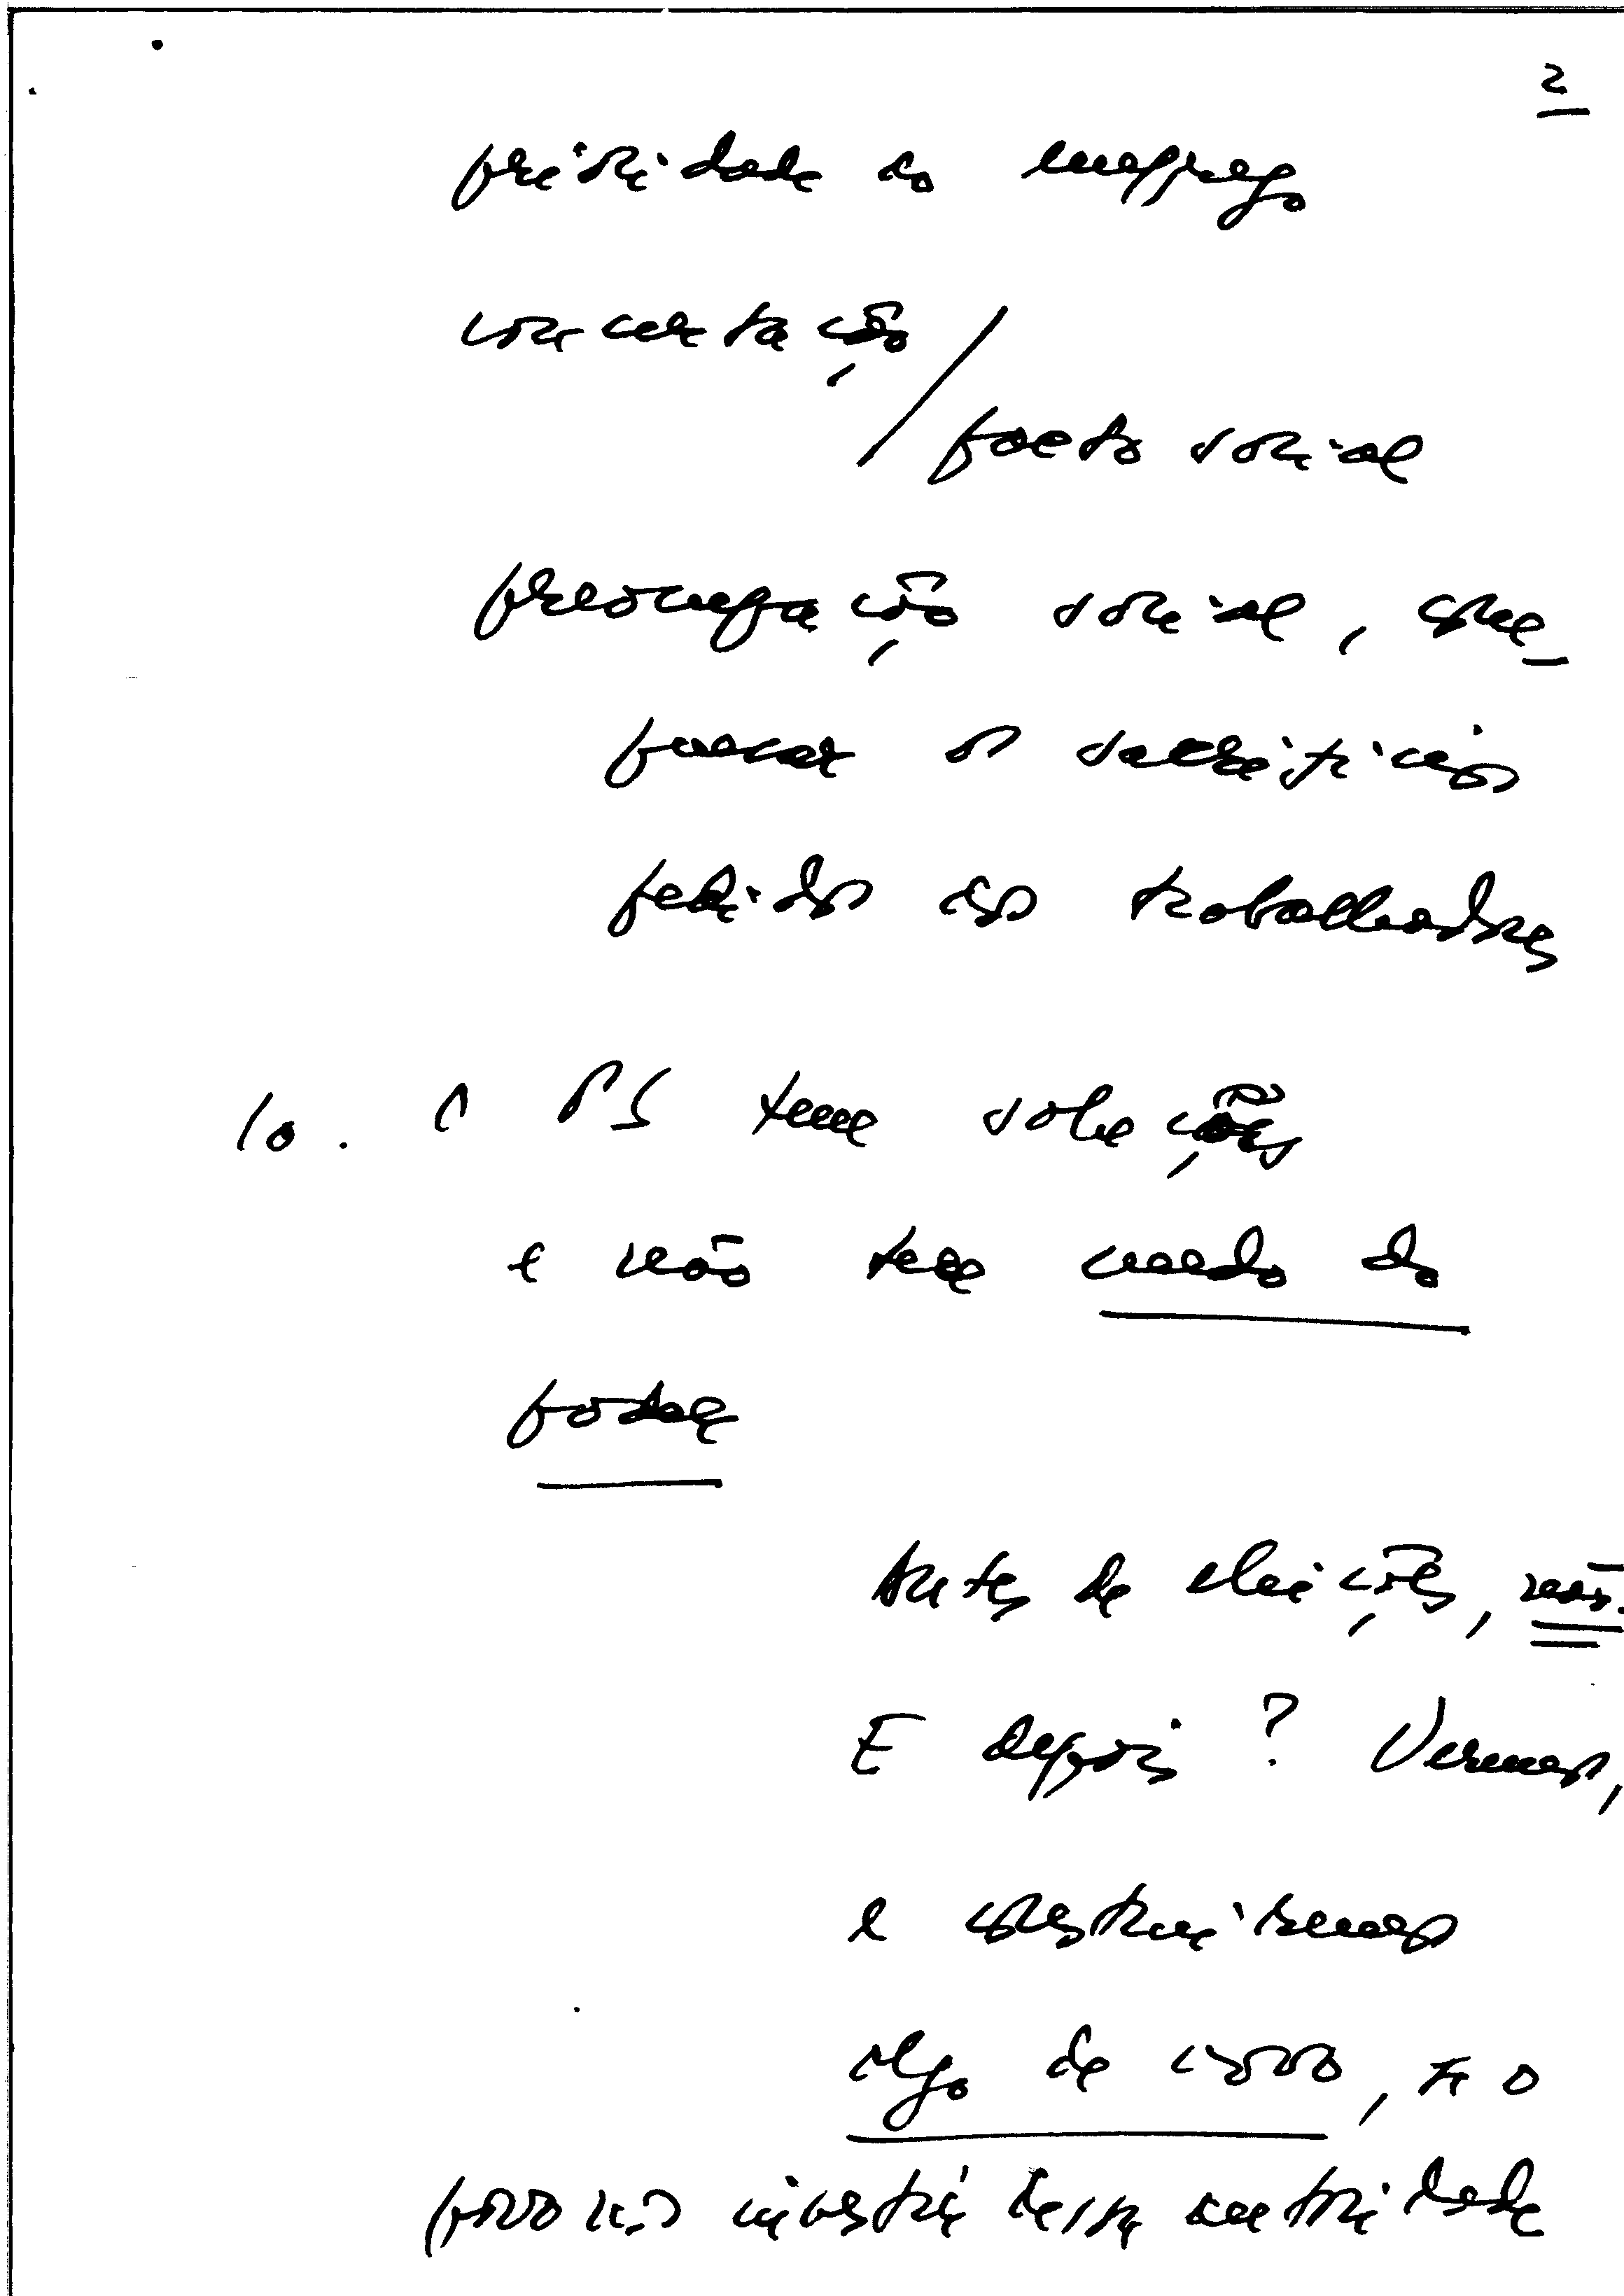 2
prioridade ao emprego
concertação /
pacto social
preocupação social, com_
pensar os sacrifícios
pedidos aos trabalhadores
10. O PS tem soluções
e não tem medo do
poder
Antes de eleições, não.
E depois? Veremos,
e construiremos
algo de novo, se o
povo nos investir dessa autoridade